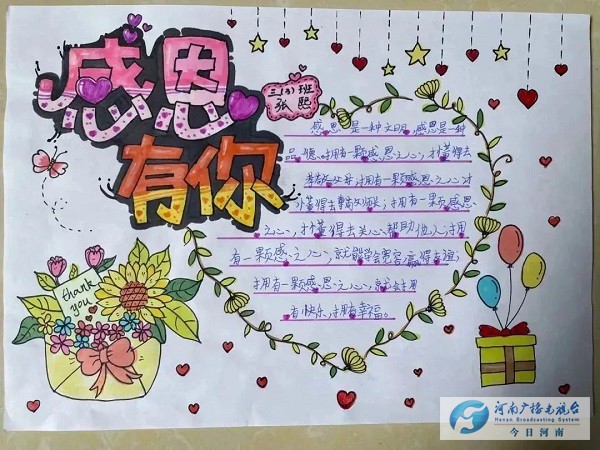 感恩
有你
三(3)班
张熙
感恩是一种文明,感恩是一种
品德,拥有一颗感恩之心,才懂得去
孝敬父母;拥有一颗感恩之心,才
懂得去尊敬师长;拥有一颗感恩
之心,才懂得去关心帮助他人;拥
有一颗感恩之心,就能学会宽容,赢得友谊;
拥有一颗感恩之心,就会拥
有快乐,拥有幸福。
thank
you
河南广播电视台
Henan Broadcasting System
今日河南